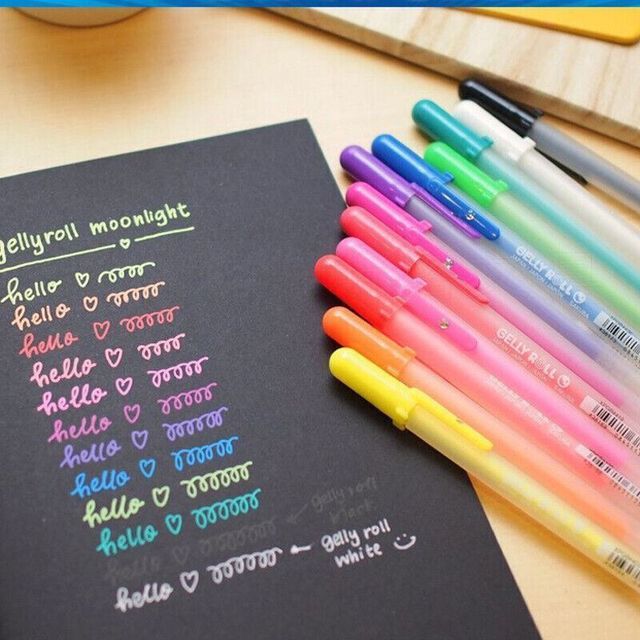 gellyroll moonlight
hello
hello
hello
hello
hello
hello
hello
hello
hello
hello
gelly roll
black
hello
gelly roll
white
GELLY ROLL
GELLY ROLL